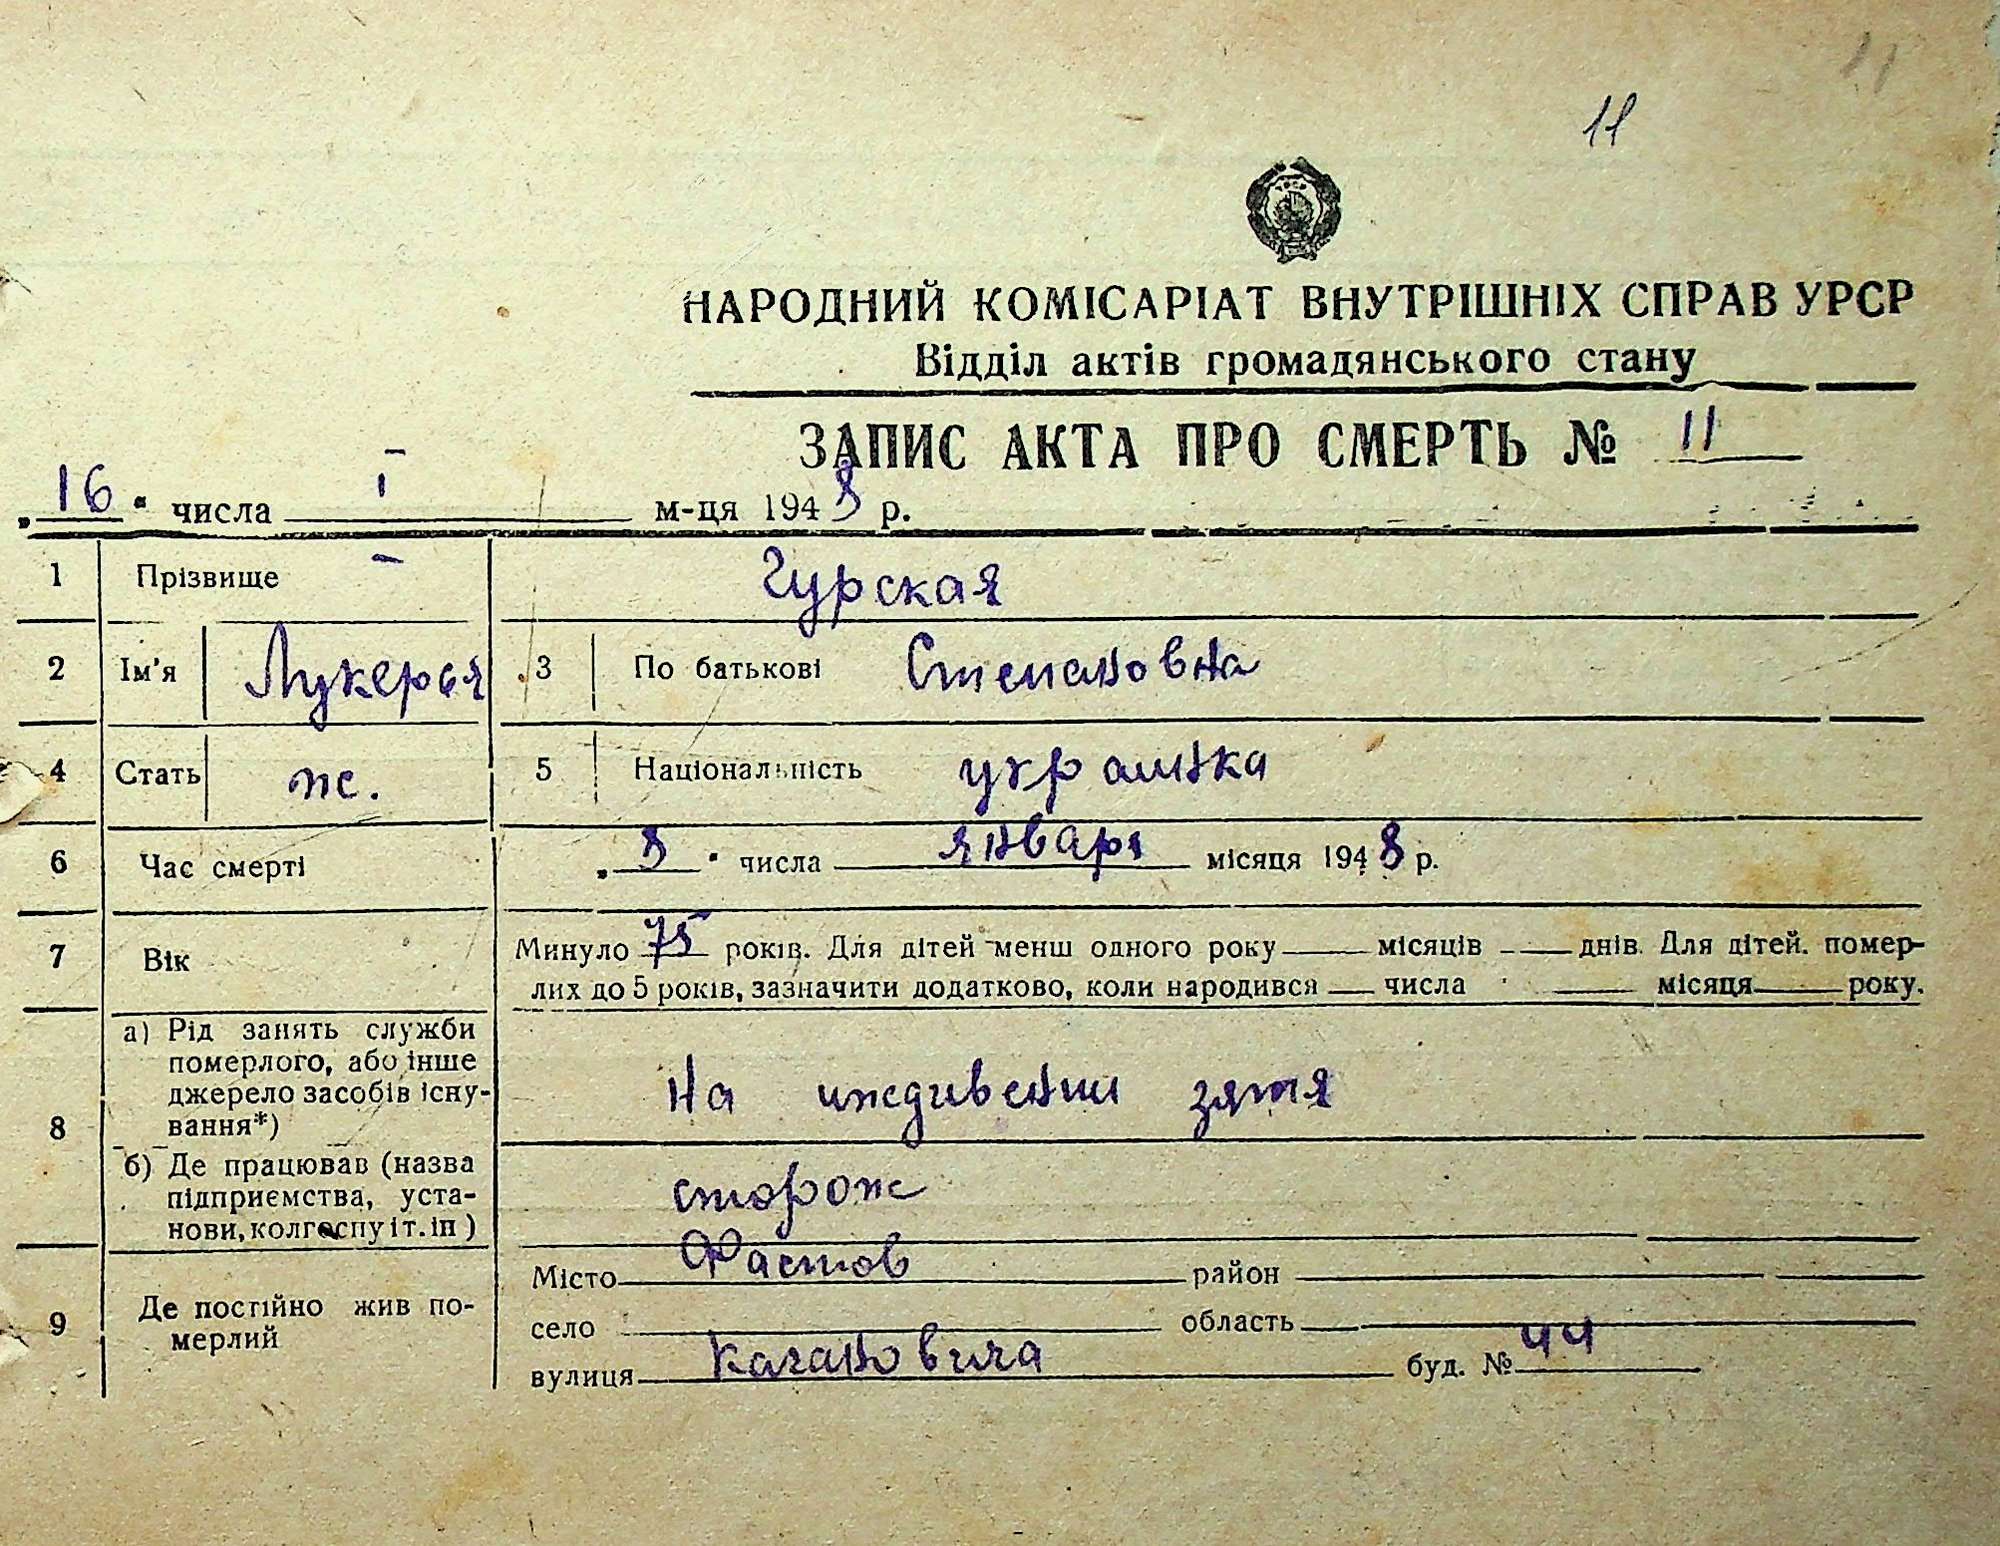 11
11
НАРОДНИЙ КОМІСАРІАТ ВНУТРІШНІХ СПРАВ УРСР
Відділ актів громадянського стану
ЗАПИС АКТА ПРО СМЕРТЬ № 11
„16" числа I м-ця 1948 р.
1 Прізвище Гурская
2 Ім'я Лукерья 3 По батькові Степановна
4 Стать ж. 5 Національність украинка
6 Час смерті „8" числа января місяця 1948 р.
7 Вік Минуло 75 років. Для дітей менш одного року — місяців — днів. Для дітей. помер-
лих до 5 років, зазначити додатково, коли народився — числа — місяця — року.
8 а) Рід занять служби
померлого, або інше
джерело засобів існу-
вання*)
На иждивении зятя
б) Де працював (назва
підприємства, уста-
нови, колгоспу і т. ін)
сторож
9 Де постійно жив по-
мерлий
Місто Фастов район
село область
вулиця Кагановича буд. № 44